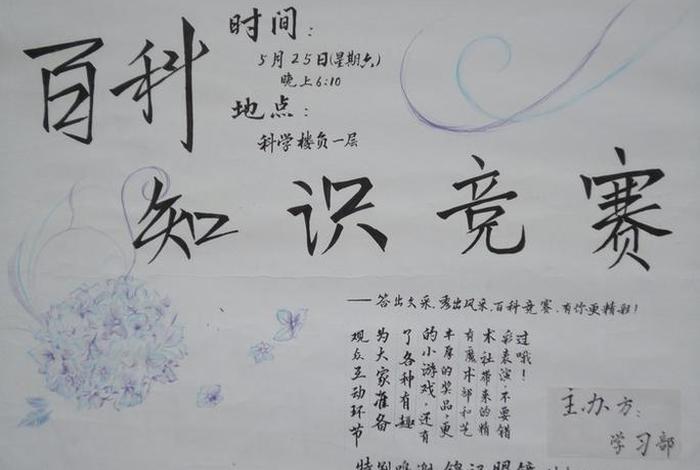 百科
时间：
5月25日(星期六)
晚上6:10
地点：
科学楼负一层
知识竞赛
——答出文采,秀出风采,百科竞赛,有你更精彩!
观众互动环节
为大家准备
了各种有趣
的小游戏,还有
丰厚的奖品,更
有魔术部和艺
术社带来的精
彩表演,不要错
过哦!
主办方：
学习部
特别鸣谢